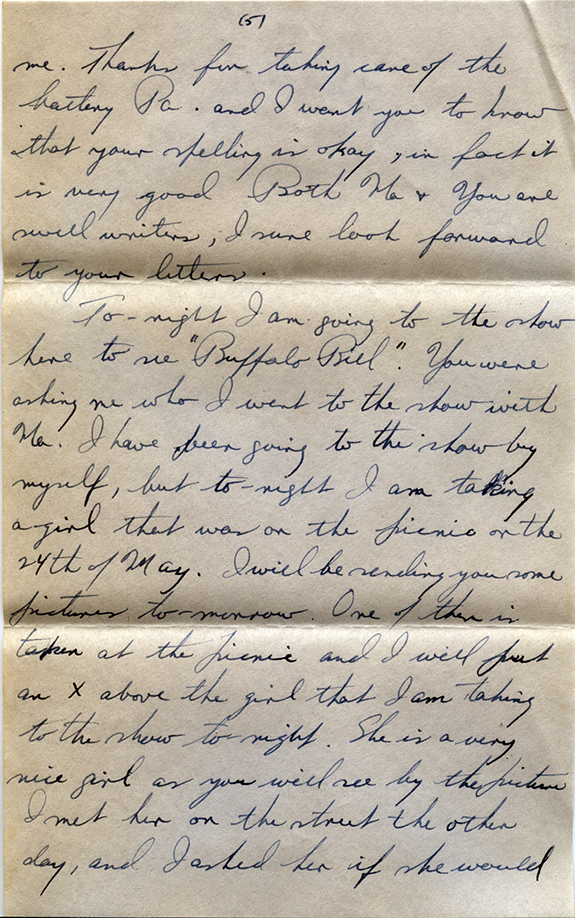 (5)
me. Thanks for taking care of the
battery Pa. and I want you to know
that your spelling is okay, in fact it
is very good Both Ma & You are
swell writers, I sure look forward
to your letters.
To-night I am going to the show
here to see "Buffalo Bill". You were
asking me who I went to the show with
Ma. I have been going to the show by
myself, but to-night I am taking
a girl that was on the picnic on the
24th of May. I will be sending you some
pictures to-morrow. One of them is
taken at the picnic and I will put
an X above the girl that I am taking
to the show to-night. She is a very
nice girl as you will see by the picture
I met her on the street the other
day, and I asked her if she would